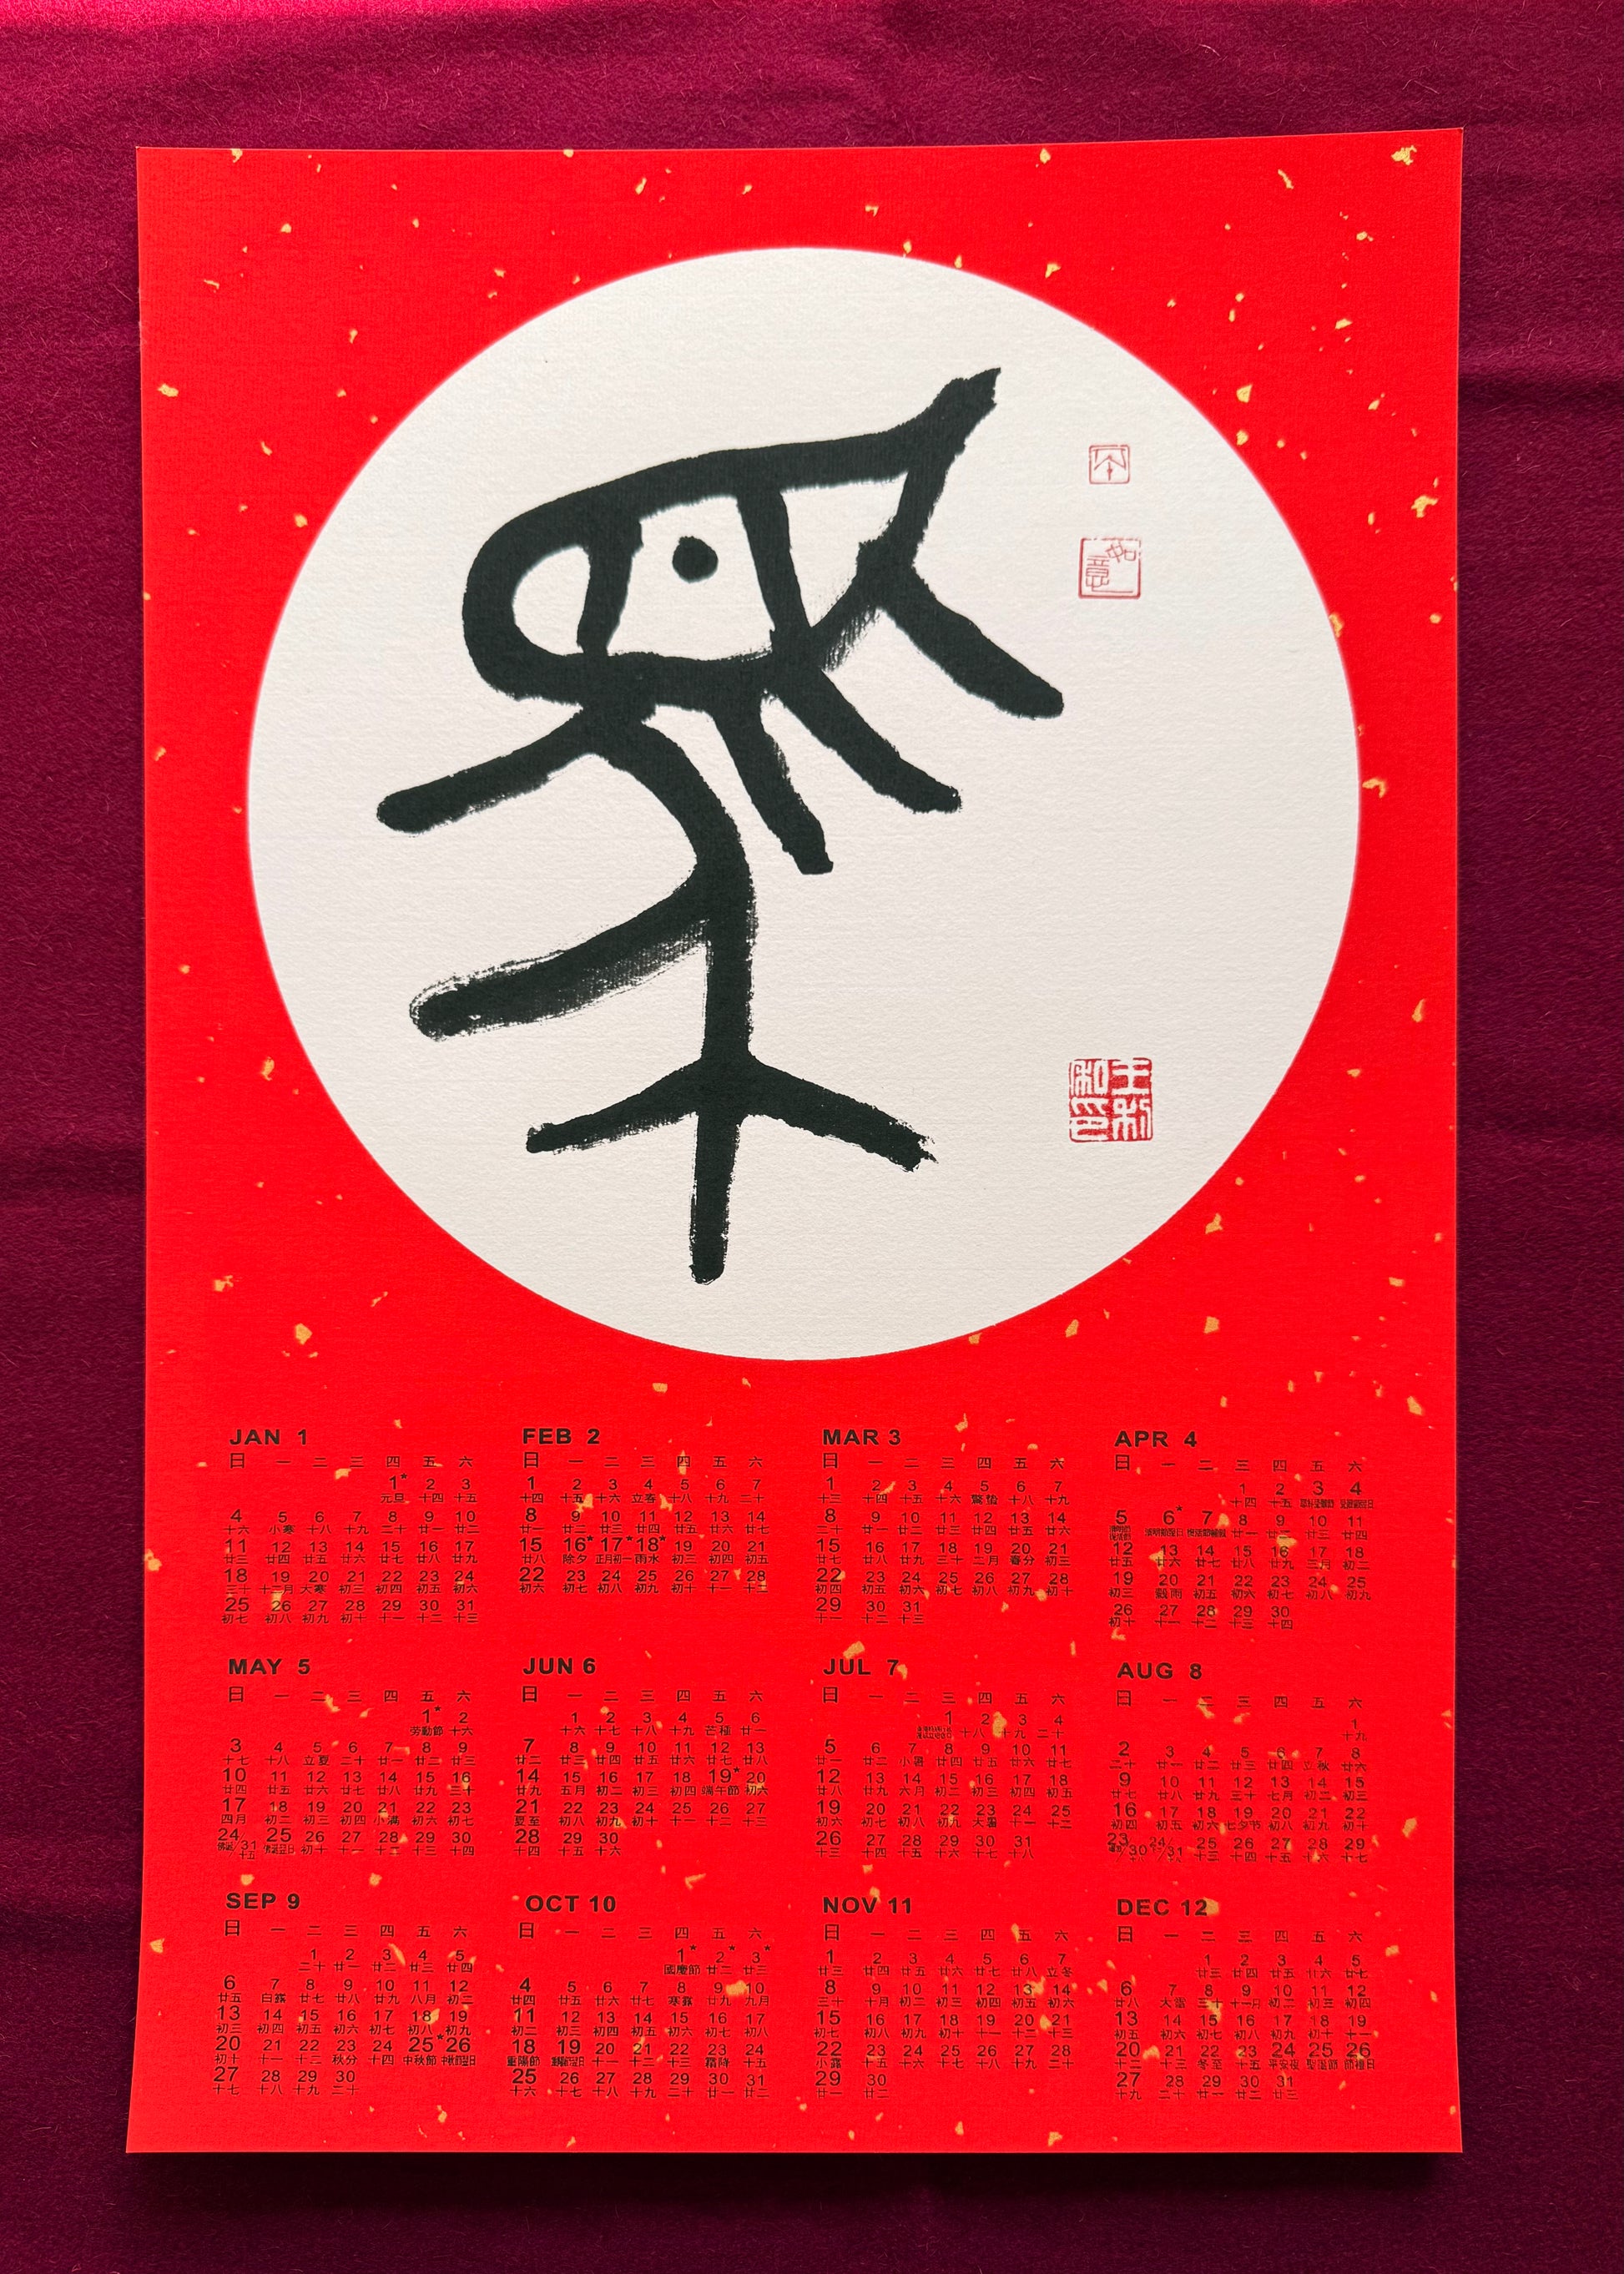 馬
如意
王利
和印
JAN 1
日 一 二 三 四 五 六
1* 2 3
元旦 十四 十五
4 5 6 7 8 9 10
十六 小寒 十八 十九 二十 廿一 廿二
11 12 13 14 15 16 17
廿三 廿四 廿五 廿六 廿七 廿八 廿九
18 19 20 21 22 23 24
三十 十二月 大寒 初三 初四 初五 初六
25 26 27 28 29 30 31
初七 初八 初九 初十 十一 十二 十三
FEB 2
日 一 二 三 四 五 六
1 2 3 4 5 6 7
十四 十五 十六 立春 十八 十九 二十
8 9 10 11 12 13 14
廿一 廿二 廿三 廿四 廿五 廿六 廿七
15 16* 17* 18* 19 20 21
廿八 除夕 正月初一 雨水 初三 初四 初五
22 23 24 25 26 27 28
初六 初七 初八 初九 初十 十一 十二
MAR 3
日 一 二 三 四 五 六
1 2 3 4 5 6 7
十三 十四 十五 十六 驚蟄 十八 十九
8 9 10 11 12 13 14
二十 廿一 廿二 廿三 廿四 廿五 廿六
15 16 17 18 19 20 21
廿七 廿八 廿九 三十 二月 春分 初三
22 23 24 25 26 27 28
初四 初五 初六 初七 初八 初九 初十
29 30 31
十一 十二 十三
APR 4
日 一 二 三 四 五 六
1 2 3 4
十四 十五 耶穌受難節 受難節翌日
5 6* 7 8 9 10 11
清明節 復活節 清明節翌日 復活節補假 廿一 廿二 廿三 廿四
12 13 14 15 16 17 18
廿五 廿六 廿七 廿八 廿九 三月 初二
19 20 21 22 23 24 25
初三 穀雨 初五 初六 初七 初八 初九
26 27 28 29 30
初十 十一 十二 十三 十四
MAY 5
日 一 二 三 四 五 六
1* 2
劳動節 十六
3 4 5 6 7 8 9
十七 十八 立夏 二十 廿一 廿二 廿三
10 11 12 13 14 15 16
廿四 廿五 廿六 廿七 廿八 廿九 三十
17 18 19 20 21 22 23
四月 初二 初三 初四 小滿 初六 初七
24/31 25 26 27 28 29 30
佛誕/十五 佛誕翌日 初十 十一 十二 十三 十四
JUN 6
日 一 二 三 四 五 六
1 2 3 4 5 6
十六 十七 十八 十九 芒種 廿一
7 8 9 10 11 12 13
廿二 廿三 廿四 廿五 廿六 廿七 廿八
14 15 16 17 18 19* 20
廿九 五月 初二 初三 初四 端午節 初六
21 22 23 24 25 26 27
夏至 初八 初九 初十 十一 十二 十三
28 29 30
十四 十五 十六
JUL 7
日 一 二 三 四 五 六
1 2 3 4
十八 十九 二十
5 6 7 8 9 10 11
廿一 廿二 小暑 廿四 廿五 廿六 廿七
12 13 14 15 16 17 18
廿八 廿九 六月 初二 初三 初四 初五
19 20 21 22 23 24 25
初六 初七 初八 初九 大暑 十一 十二
26 27 28 29 30 31
十三 十四 十五 十六 十七 十八
AUG 8
日 一 二 三 四 五 六
1
十九
2 3 4 5 6 7 8
二十 廿一 廿二 廿三 廿四 立秋 廿六
9 10 11 12 13 14 15
廿七 廿八 廿九 三十 七月 初二 初三
16 17 18 19 20 21 22
初四 初五 初六 七夕节 初八 初九 初十
23/30 24/31 25 26 27 28 29
十三 十四 十五 十六 十七
SEP 9
日 一 二 三 四 五 六
1 2 3 4 5
二十 廿一 廿二 廿三 廿四
6 7 8 9 10 11 12
廿五 白露 廿七 廿八 廿九 八月 初二
13 14 15 16 17 18 19
初三 初四 初五 初六 初七 初八 初九
20 21 22 23 24 25* 26
初十 十一 十二 秋分 十四 中秋節 中秋節翌日
27 28 29 30
十七 十八 十九 二十
OCT 10
日 一 二 三 四 五 六
1* 2* 3*
國慶節 廿二 廿三
4 5 6 7 8 9 10
廿四 廿五 廿六 廿七 寒露 廿九 九月
11 12 13 14 15 16 17
初二 初三 初四 初五 初六 初七 初八
18 19 20 21 22 23 24
重陽節 重陽節翌日 十一 十二 十三 霜降 十五
25 26 27 28 29 30 31
十六 十七 十八 十九 二十 廿一 廿二
NOV 11
日 一 二 三 四 五 六
1 2 3 4 5 6 7
廿三 廿四 廿五 廿六 廿七 廿八 立冬
8 9 10 11 12 13 14
三十 十月 初二 初三 初四 初五 初六
15 16 17 18 19 20 21
初七 初八 初九 初十 十一 十二 十三
22 23 24 25 26 27 28
小雪 十五 十六 十七 十八 十九 二十
29 30
廿一 廿二
DEC 12
日 一 二 三 四 五 六
1 2 3 4 5
廿三 廿四 廿五 廿六 廿七
6 7 8 9 10 11 12
廿八 大雪 三十 十一月 初二 初三 初四
13 14 15 16 17 18 19
初五 初六 初七 初八 初九 初十 十一
20 21 22 23 24 25 26
十二 十三 冬至 十五 平安夜 聖誕節 節禮日
27 28 29 30 31
十九 二十 廿一 廿二 廿三